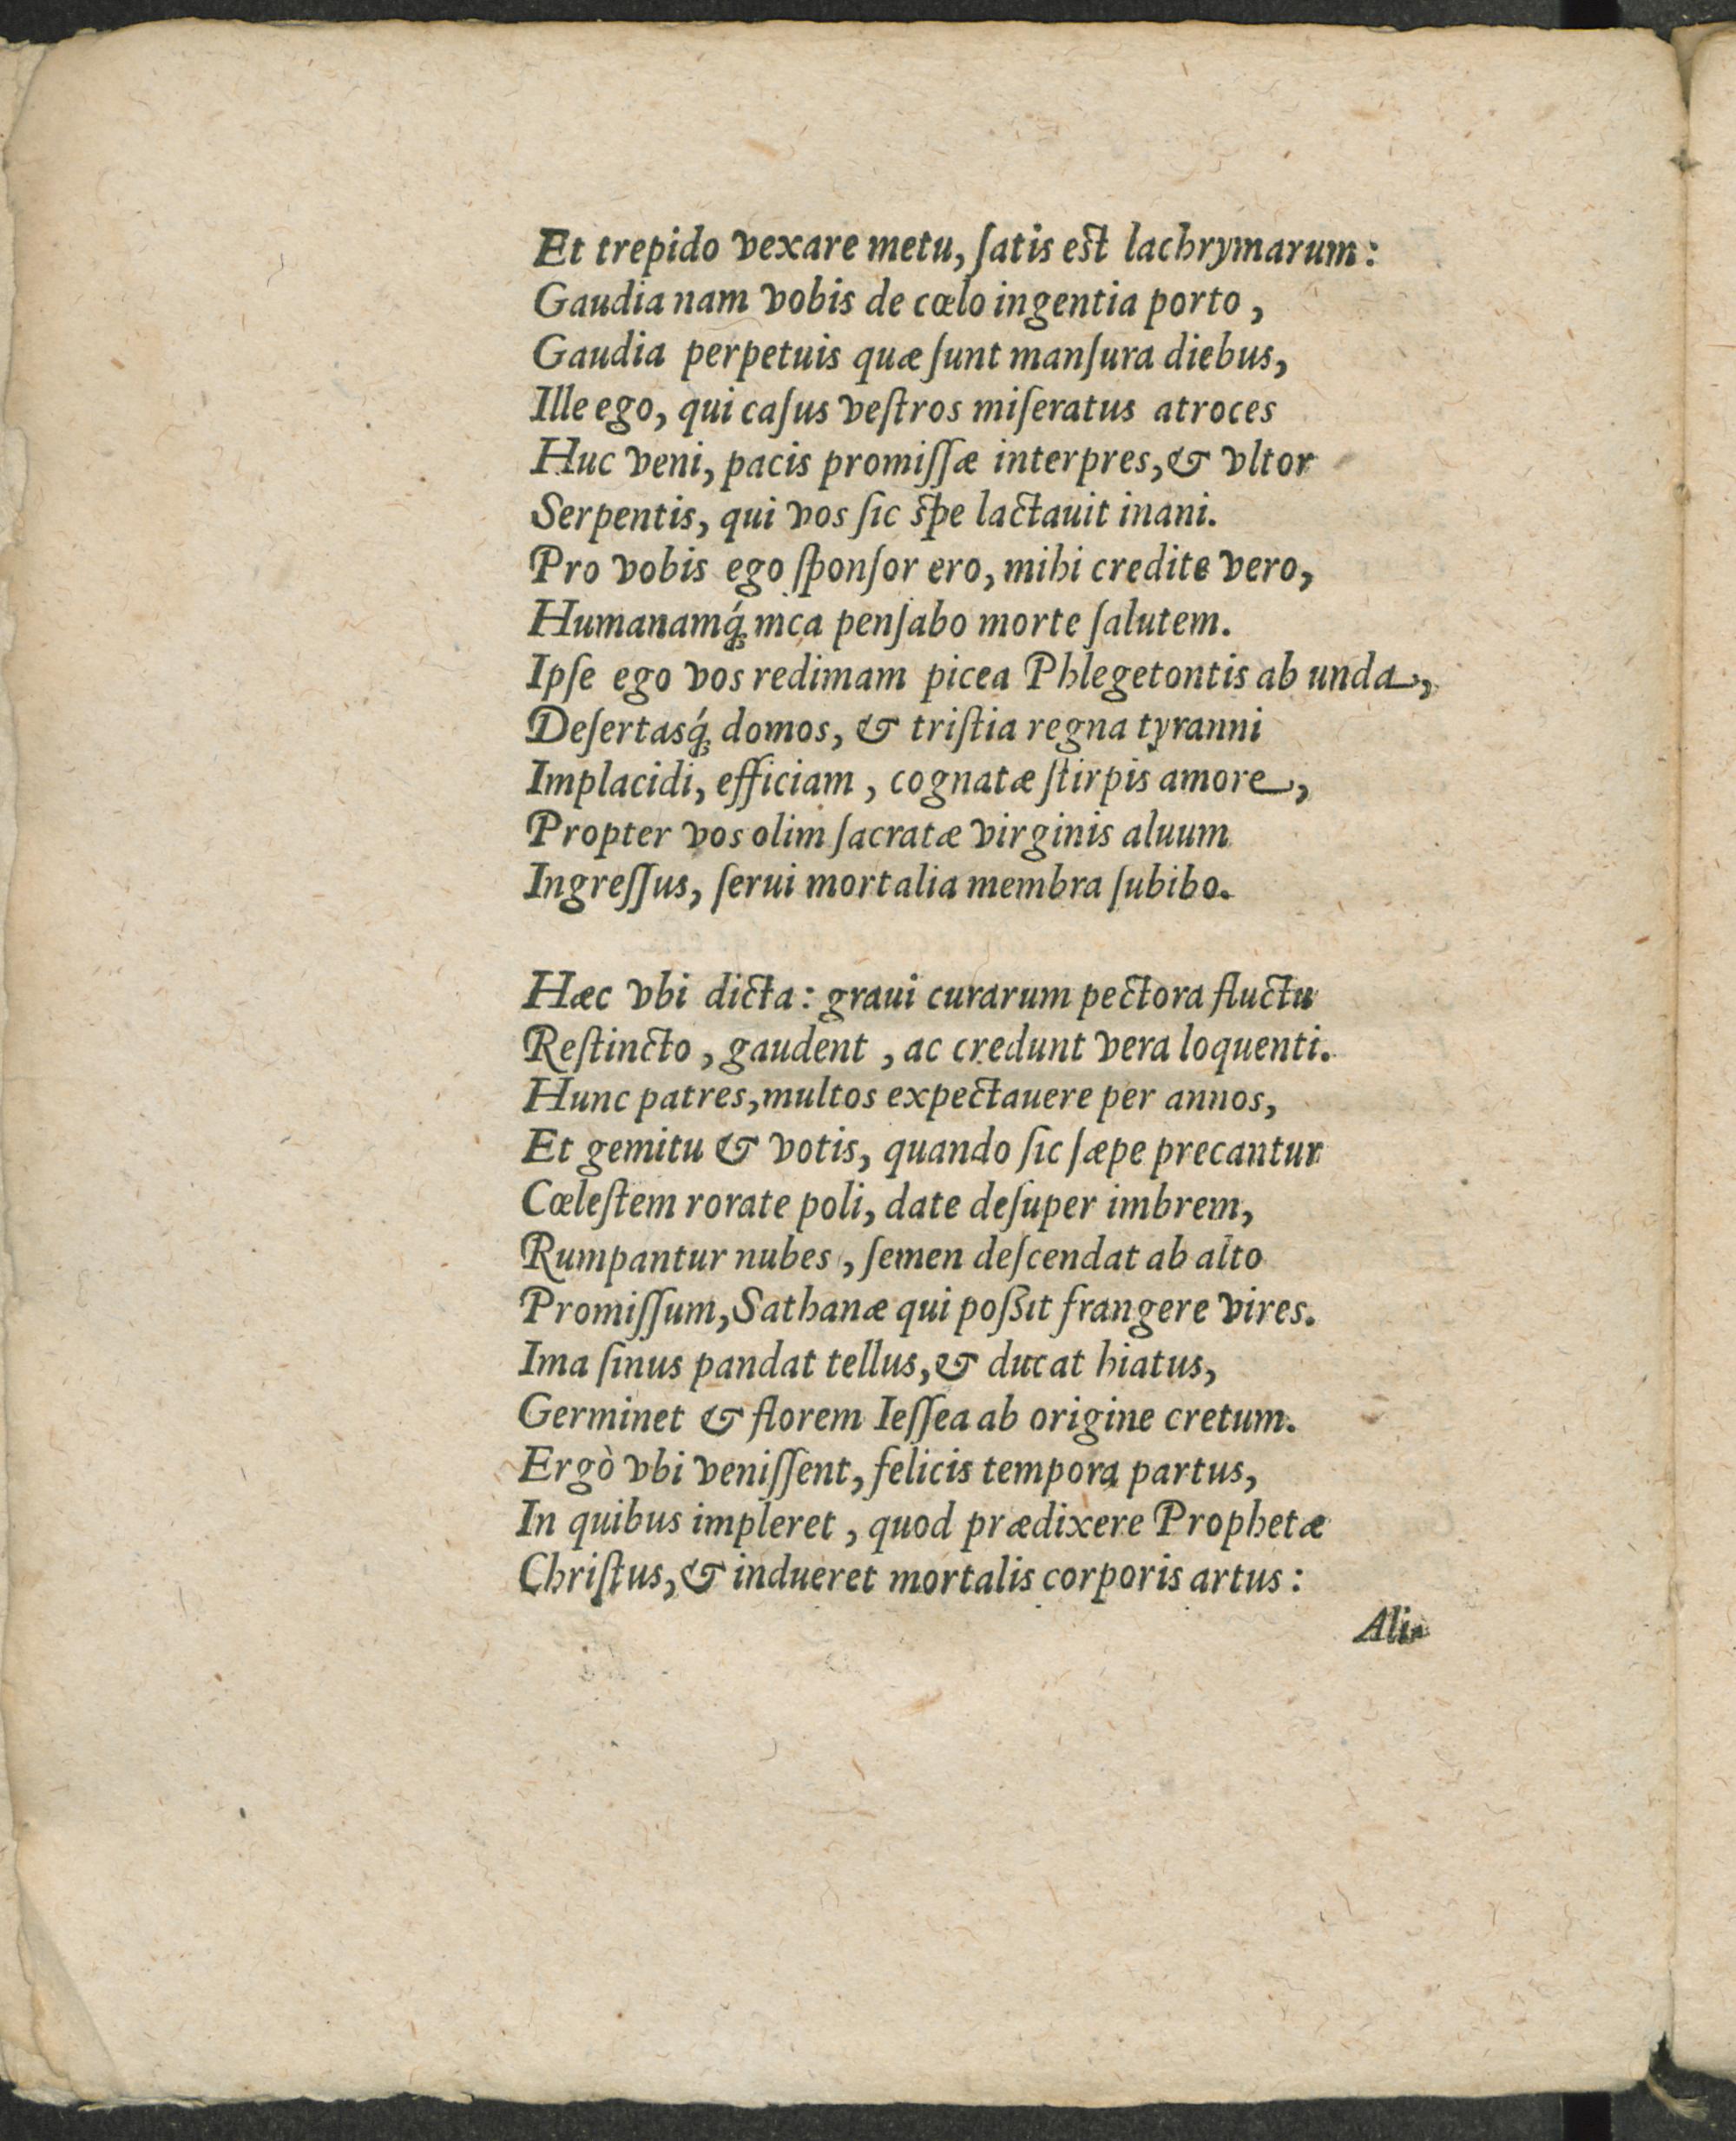 Et trepido vexare metu, ſatis est lachrymarum:
Gaudia nam vobis de cœlo ingentia porto,
Gaudia perpetuis quæ ſunt manſura diebus,
Ille ego, qui caſus veſtros miſeratus atroces
Huc veni, pacis promiſſæ interpres, & vltor
Serpentis, qui vos ſic spe lactauit inani.
Pro vobis ego ſponſor ero, mihi credite vero,
Humanamq́; mea penſabo morte ſalutem.
Ipſe ego vos redimam picea Phlegetontis ab unda,
Deſertasq́; domos, & triſtia regna tyranni
Implacidi, efficiam, cognatæ ſtirpis amore,
Propter vos olim ſacratæ virginis aluum
Ingreſſus, ſerui mortalia membra ſubibo.

Hæc vbi dicta: graui curarum pectora fluctu
Reſtincto, gaudent, ac credunt vera loquenti.
Hunc patres, multos expectauere per annos,
Et gemitu & votis, quando ſic ſæpe precantur
Cœleſtem rorate poli, date deſuper imbrem,
Rumpantur nubes, ſemen deſcendat ab alto
Promiſſum, Sathanæ qui poßit frangere vires.
Ima ſinus pandat tellus, & ducat hiatus,
Germinet & florem Ieſſea ab origine cretum.
Ergò vbi veniſſent, felicis tempora partus,
In quibus impleret, quod prædixere Prophetæ
Chriſtus, & indueret mortalis corporis artus:
Ali-